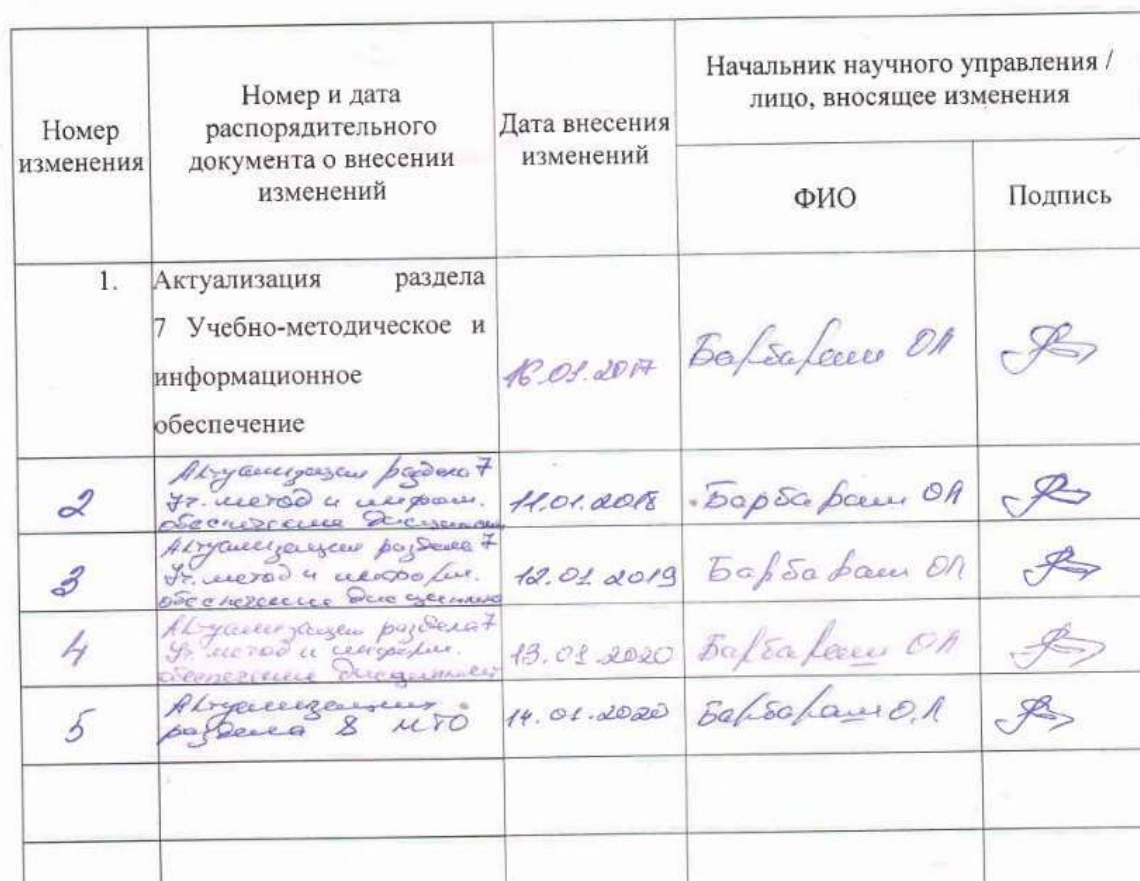 Номер
изменения
Номер и дата
распорядительного
документа о внесении
изменений
Дата внесения
изменений
Начальник научного управления /
лицо, вносящее изменения
ФИО
Подпись
1.
Актуализация раздела
7 Учебно-методическое и
информационное
обеспечение
16.01.2017
Барбараш ОЛ
2
Актуализация раздела 7
Уч. метод и информ.
обеспечение дисциплины
11.01.2018
Барбараш ОЛ
3
Актуализация раздела 7
Уч. метод и информ.
обеспечение дисциплины
12.01.2019
Барбараш ОЛ
4
Актуализация раздела 7
Уч. метод и информ.
обеспечение дисциплины
13.01.2020
Барбараш ОЛ
5
Актуализация
раздела 8 МТО
14.01.2020
Барбараш О.Л